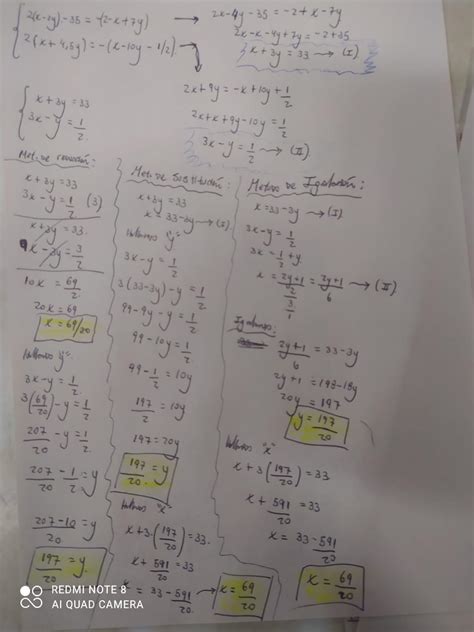 2(x-2y)-35=-(2-x+7y) → 2x-4y-35=-2+x-7y
2(x+4,5y)=-(x-10y-1/2). 2x-x-4y+7y=-2+35
x+3y=33 → (I)
2x+9y=-x+10y+1/2
2x+x+9y-10y=1/2
3x-y=1/2 → (II)
x+3y=33
3x-y=1/2
Met. de reducción:
x+3y=33
3x-y=1/2 (3)
x+3y=33
9x-3y=3/2
10x=69/2
20x=69
x=69/20
hallamos "y":
3x-y=1/2
3(69/20)-y=1/2
207/20-y=1/2
207/20-1/2=y
207-10/20=y
197/20=y
Met. de Sustitución:
x+3y=33
x=33-3y → (I)
hallamos "y"
3x-y=1/2
3(33-3y)-y=1/2
99-9y-y=1/2
99-10y=1/2
99-1/2=10y
197/2=10y
197=20y
197/20=y
hallamos "x"
x+3(197/20)=33.
x+591/20=33
x=33-591/20 → x=69/20
Metodo de Igualación:
x=33-3y → (I)
3x-y=1/2
3x=1/2+y
x=2y+1/2/3/1=2y+1/6 → (II)
Igualamos:
2y+1/6=33-3y
2y+1=198-18y
20y=197
y=197/20
hallamos "x"
x+3(197/20)=33
x+591/20=33
x=33-591/20
x=69/20
REDMI NOTE 8
AI QUAD CAMERA